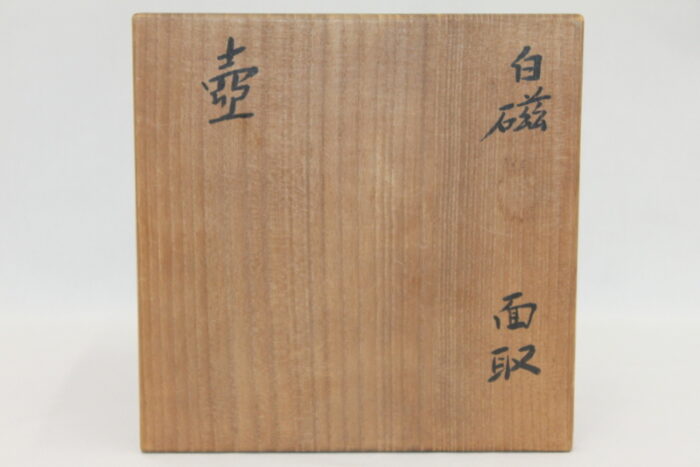 白磁
面取
壺